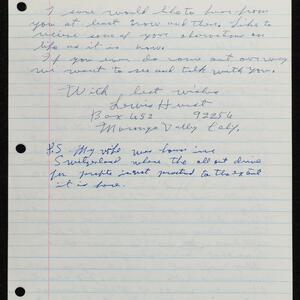 I sure would like to hear from
you at least now and then. Like to
receive some of your observations on
life as it is now.
If you ever do come out our way
we want to see and talk with you.
With best wishes
Lewis Hurst
Box 452 92256
Morongo Valley Calif.
P.S. My wife was born in
Switzerland where the all out drive
for profits is not practiced to the extent
it is here.